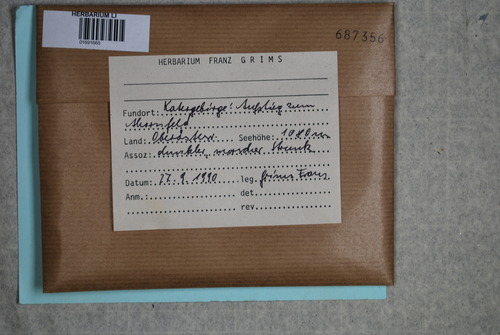 HERBARIUM LI
687356
HERBARIUM FRANZ GRIMS
Fundort: Katergebirge: Aufstieg zum
Ahornfeld
Land: Oberösterr. Seehöhe: 1080 m
Assoz: dunkler, morscher Strunk
Datum: 27.9.1990 leg. Grims Franz
Anm.: det.
rev.